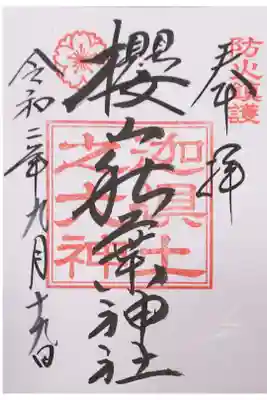 防火鎮護
奉拝
櫻山秋葉神社
迦具土
之大神
令和二年九月十九日